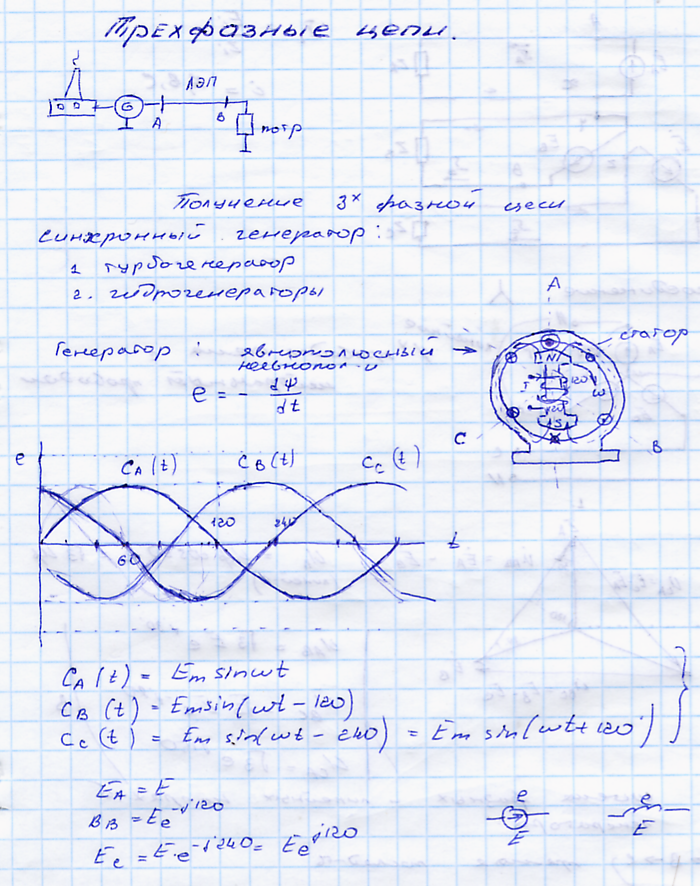 Трехфазные цепи.
ЛЭП
G
A
B
потр
Получение 3х фазной цеси
синхронный генератор:
1 турбогенератор
2. гидрогенераторы
A
статор
Генератор : явнополюсный
неявнопол-й
N
120
ω
S
C
B
e = - dψ/dt
e
CA(t) CB(t) CC(t)
60 120 240 t
CA(t) = Em sinωt
CB(t) = Em sin(ωt - 120)
CC(t) = Em sin(ωt - 240) = Em sin(ωt + 120)
EA = E
BB = Ee^-j120
Ee = E·e^-j240 = Ee^j120
e e
E E